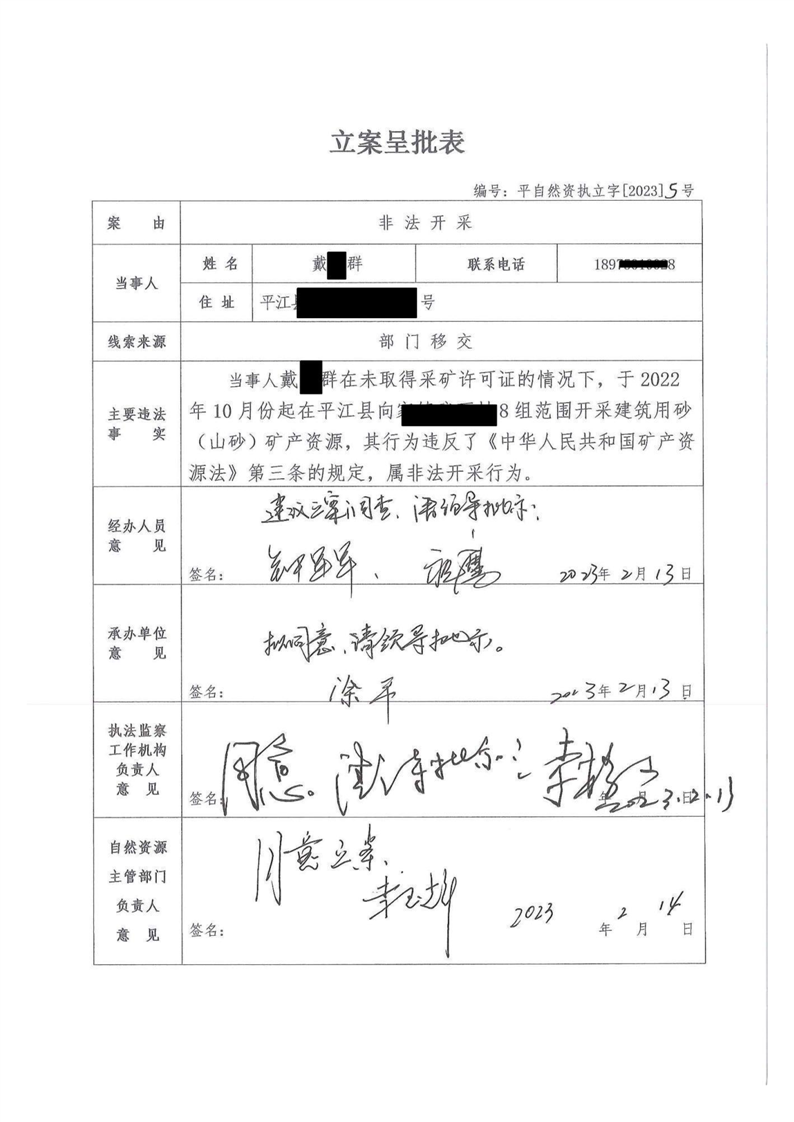 立案呈批表
编号：平自然资执立字[2023]5号
案 由 非法开采
当事人 姓名 戴 群 联系电话 1897 8
住址 平江县 号
线索来源 部门移交
主要违法事实
当事人戴 群在未取得采矿许可证的情况下，于 2022
年 10 月份起在平江县向家 8 组范围开采建筑用砂
（山砂）矿产资源，其行为违反了《中华人民共和国矿产资
源法》第三条的规定，属非法开采行为。
经办人员意见
建议立案调查，请领导批示：
签名： 2023年 2月 13日
承办单位意见
拟同意，请领导批示。
签名： 涂平 2023年 2月 13日
执法监察工作机构负责人意见
同意。请 批示：
签名： 李 年 月 日 2023.2.13
自然资源主管部门负责人意见
同意立案。
签名： 李 2023 年 2 月 14 日